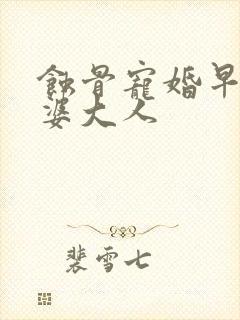 蝕骨寵婚早
婆大人
裴雪七